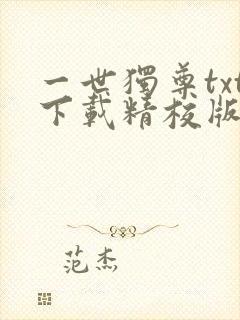 一世獨尊txt
下載精校版
范杰